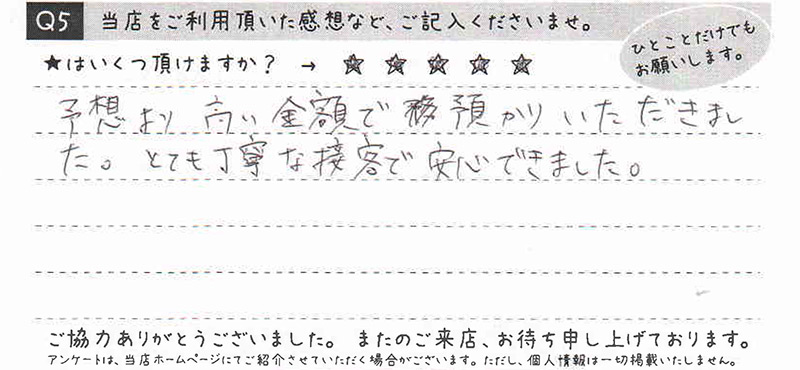 Q5 当店をご利用頂いた感想など、ご記入くださいませ。
ひとことだけでも
お願いします。
★はいくつ頂けますか？ → ☆ ☆ ☆ ☆ ☆
予想より高い金額で預かりいただきまし
た。とても丁寧な接客で安心できました。
ご協力ありがとうございました。 またのご来店、お待ち申し上げております。
アンケートは、当店ホームページにてご紹介させていただく場合がございます。ただし、個人情報は一切掲載いたしません。